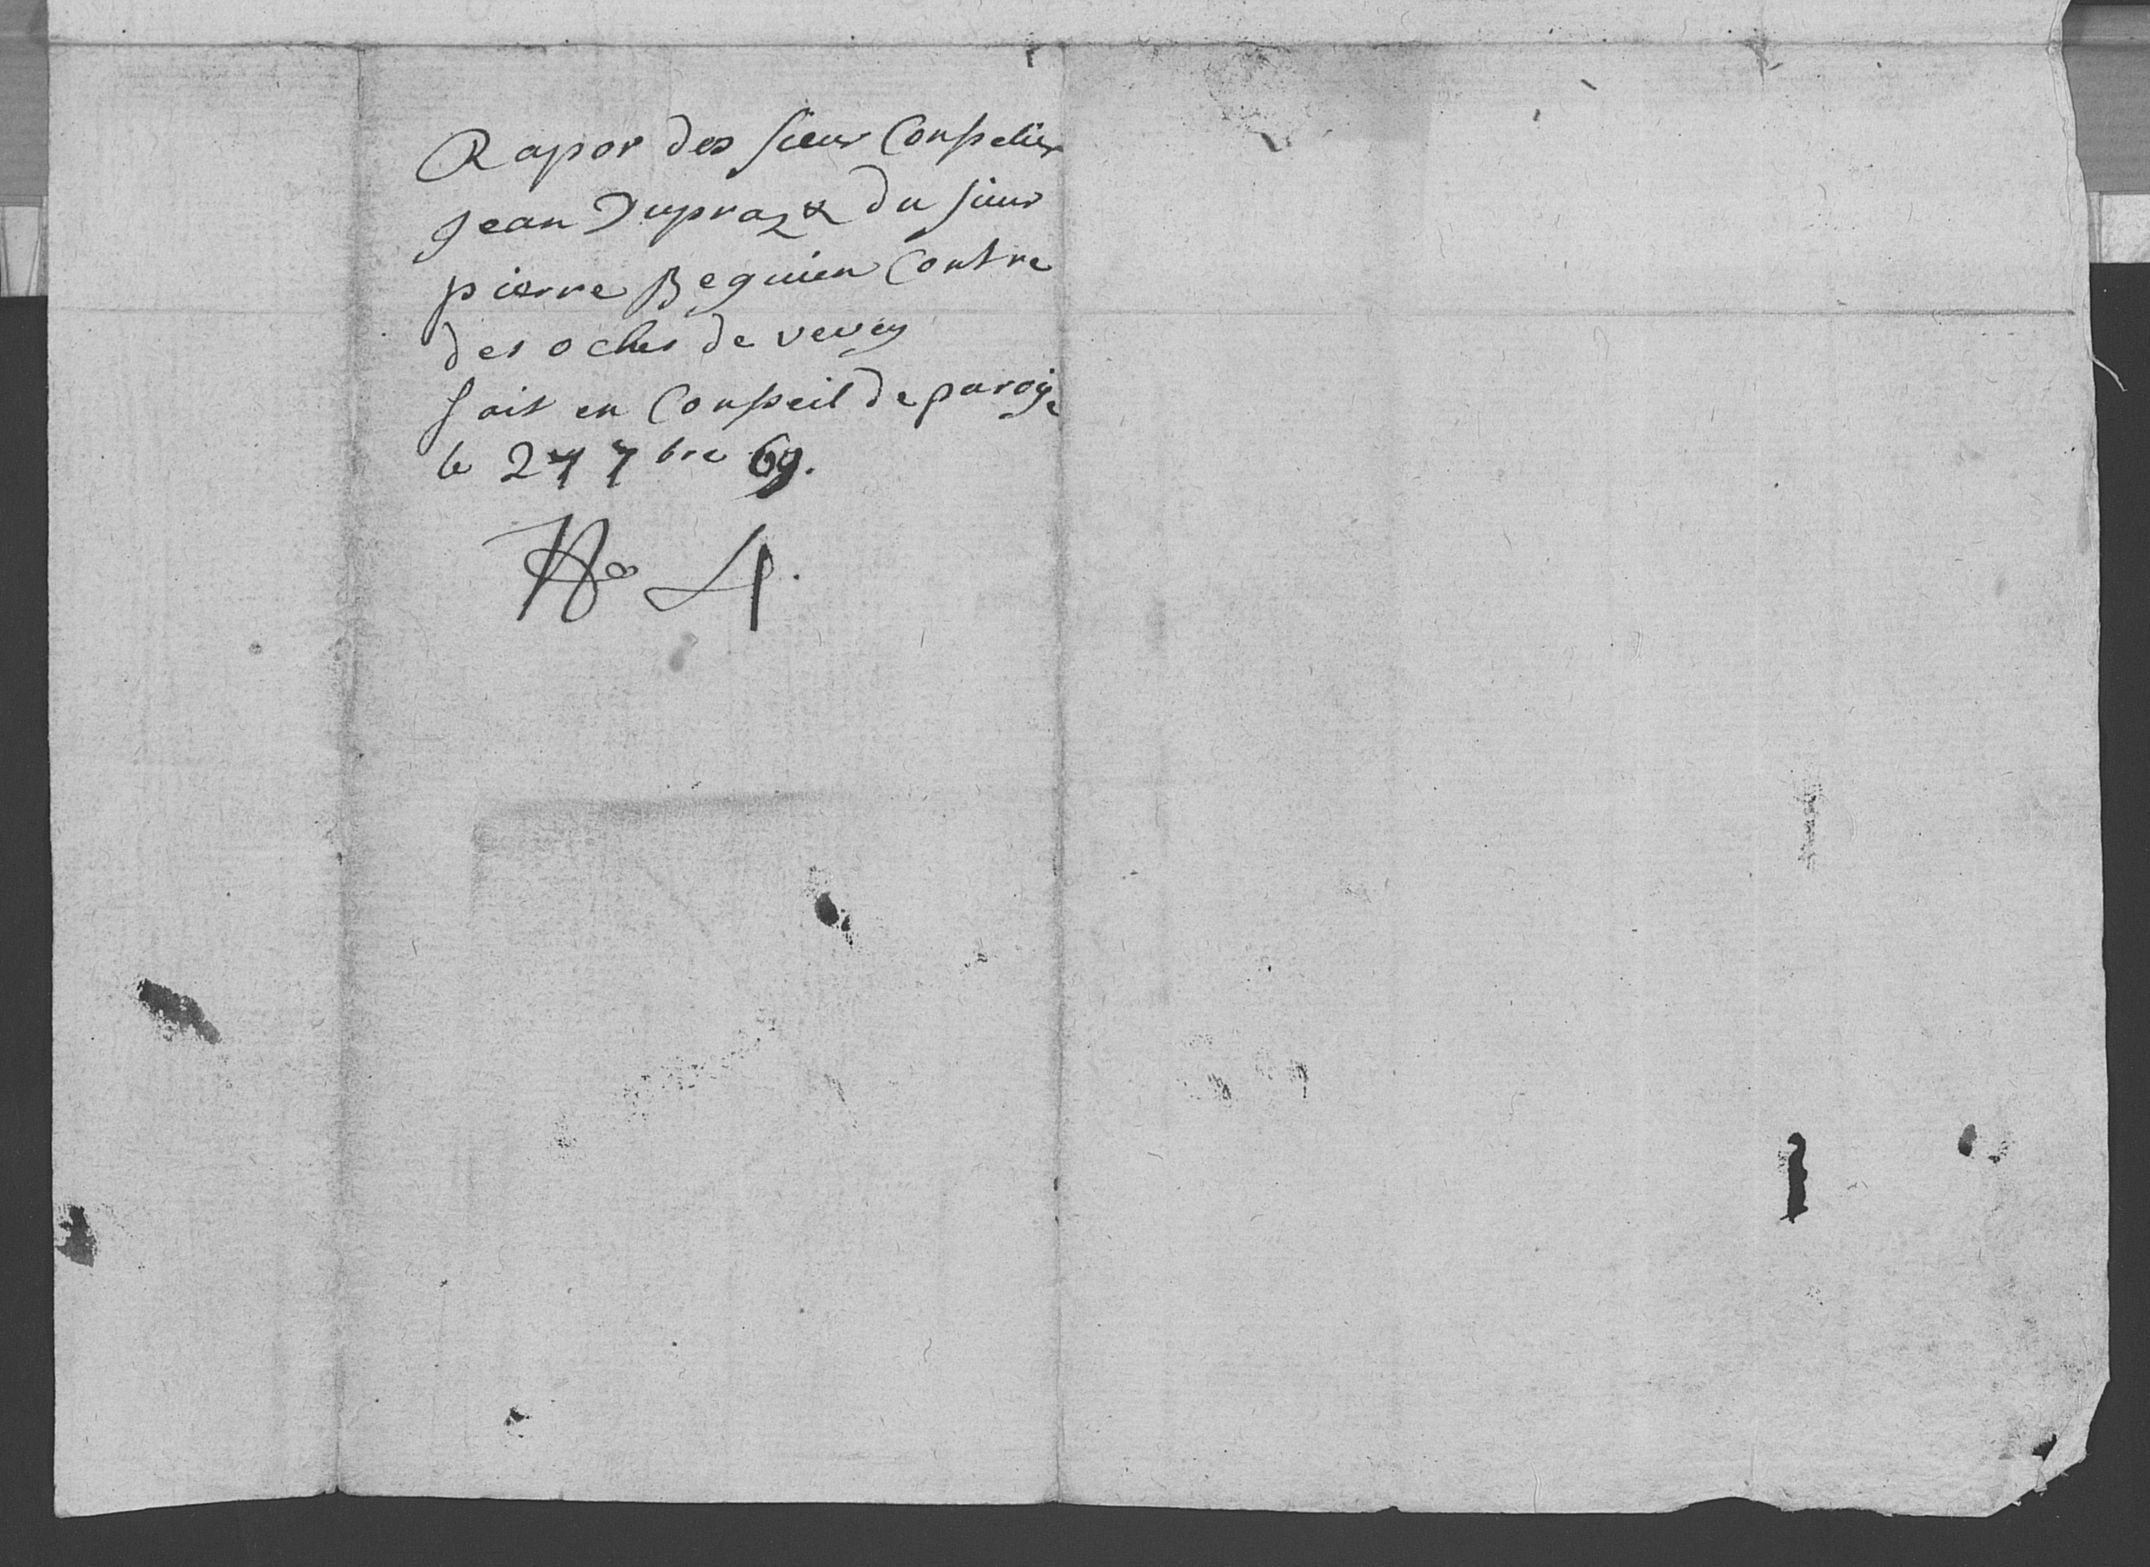 Rapor des sieur Conselier
Jean Dupraz & du sieur
pierre Beguien Contre
des oches de vevey
fait en Conseil de paroise
le 27 7bre 69.
No 4.